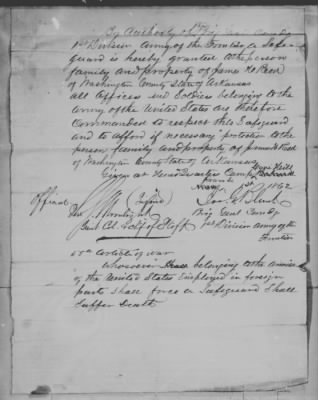 By Authority of Brig Genl Comdg
1st Division Army of the Frontier a Safe-
guard is hereby granted to the person
family and property of James H Reed
of Washington County State of Arkansas.
All Officers and Soldiers belonging to the
Army of the United States are therefore
commanded to respect this Safeguard
and to afford if necessary protection to the
person family and property of James H Reed
of Washington County State of Arkansas.
Given at Head Quarters Camp
1862
Official (Signed)
Brig Genl Comdg
1st Division Army of the
Frontier
55th Article of War
Whosoever belonging to the Armies
of the United States Employed in foreign
parts Shall force a Safeguard Shall
Suffer Death.